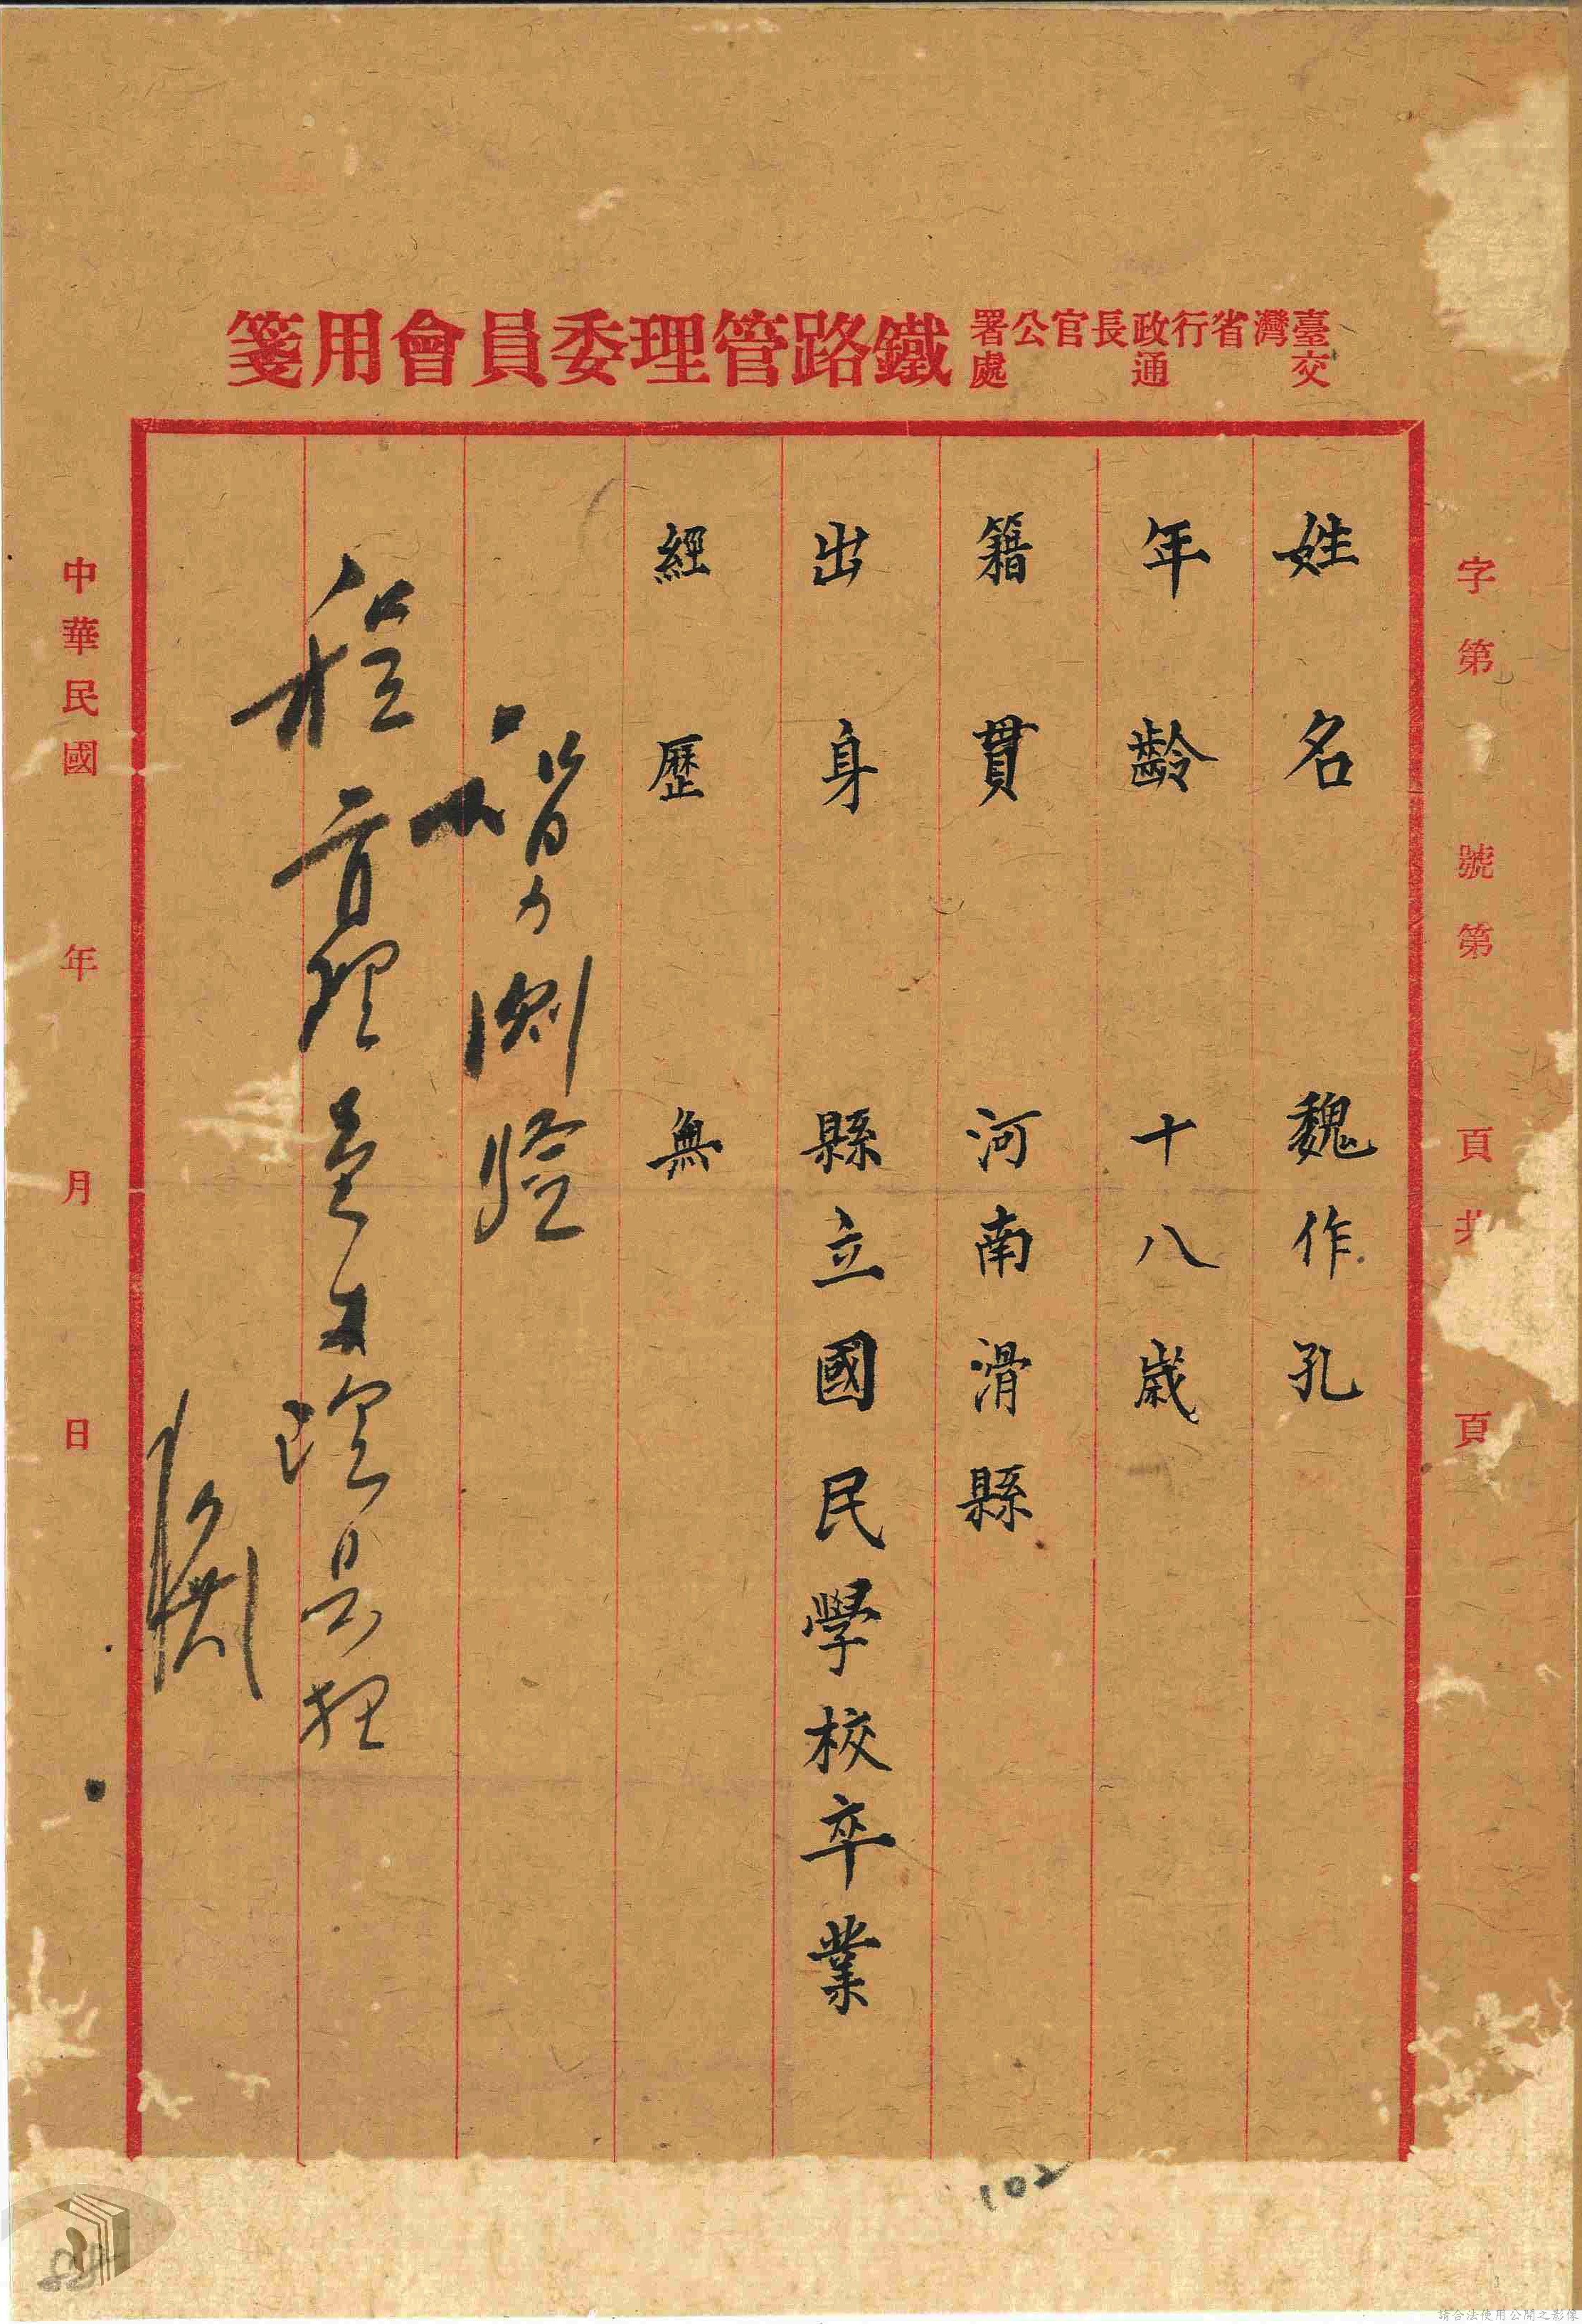 臺灣省行政長官公署
交通處
鐵路管理委員會用箋
字第 號第 頁共 頁
姓名 魏作孔
年齡 十八歲
籍貫 河南滑縣
出身 縣立國民學校卒業
經歷 無
智力測驗
中華民國 年 月 日
102
請合法使用公開之影像